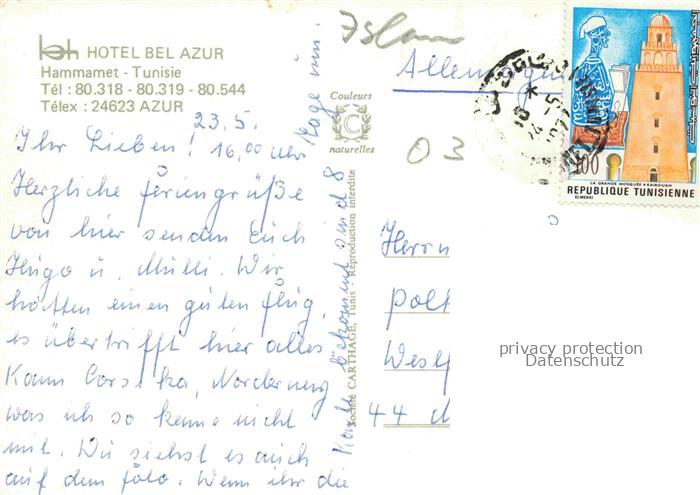 HOTEL BEL AZUR
Hammamet - Tunisie
Tél : 80.318 - 80.319 - 80.544
Télex : 24623 AZUR
23.5.
Ihr Lieben! 16,00 Uhr
Herzliche Feriengrüße
von hier senden Euch
Hugo u. Mulli. Wir
hatten einen guten Flug,
es übertrifft hier alles
Kann Corsika, Norderney
was ich so kenne nicht
mit. Du siehst es auch
auf dem Foto. Wenn ihr die
Karte bekommt sind 8
Tage um.
Couleurs
naturelles
Société CARTHAGE, Tunis - Reproduction interdite
Islam
Allemagne
03
100
LA GRANDE MOSQUÉE • KAIROUAN
REPUBLIQUE TUNISIENNE
ELMEKKI
Herrn
44
privacy protection
Datenschutz